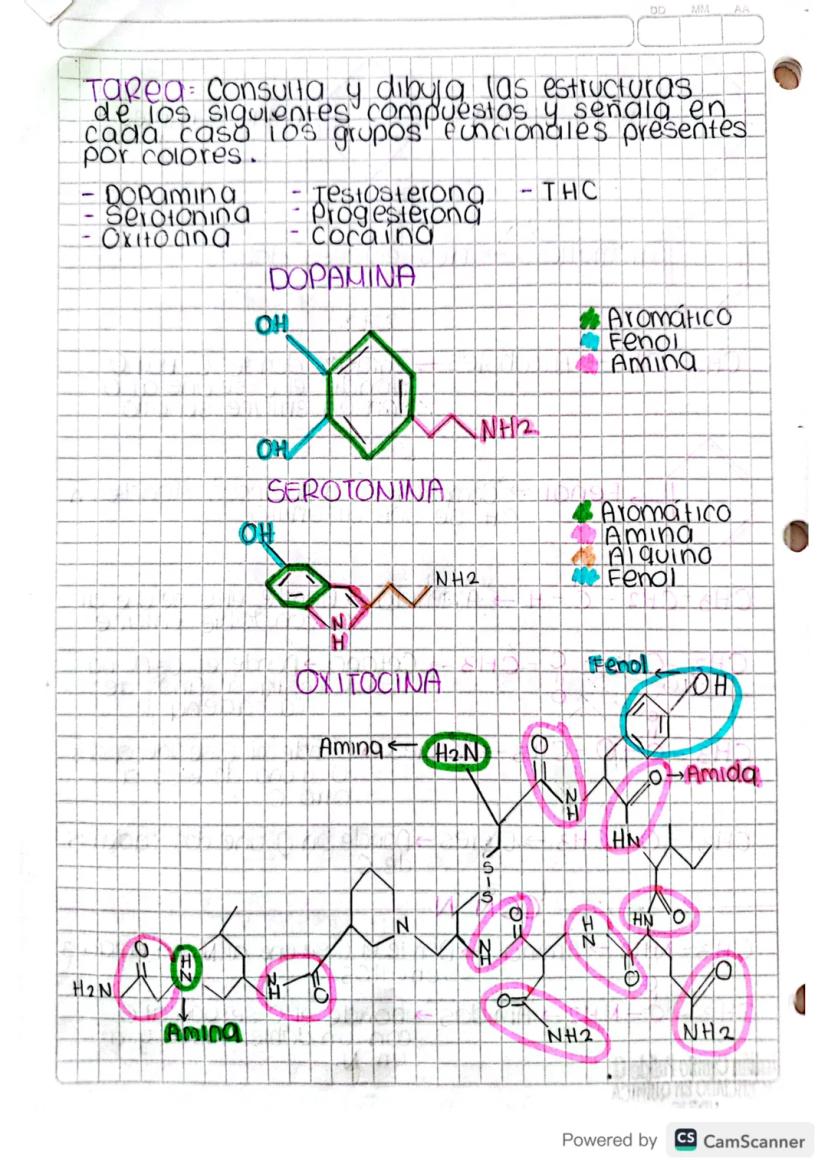 DD MM AA
Tarea: Consulta y dibuja las estructuras
de los siguientes compuestos y señala en
cada caso los grupos funcionales presentes
por colores.
- Dopamina - Testosterona - THC
- Serotonina - Progesterona
- Oxitocina - Cocaína
DOPAMINA
OH
Aromático
Fenol
Amina
OH
NH2
SEROTONINA
Aromático
OH
Amina
Alquino
NH2
Fenol
N
H
Fenol
OXITOCINA
OH
Amina
H2N
O
O
Amida
N
H
HN
S
S
O
HN
O
N
H
N
O
H
N
N
H
O
H2N
N
H
O
O
O
NH2
NH2
Amina
Powered by CS CamScanner